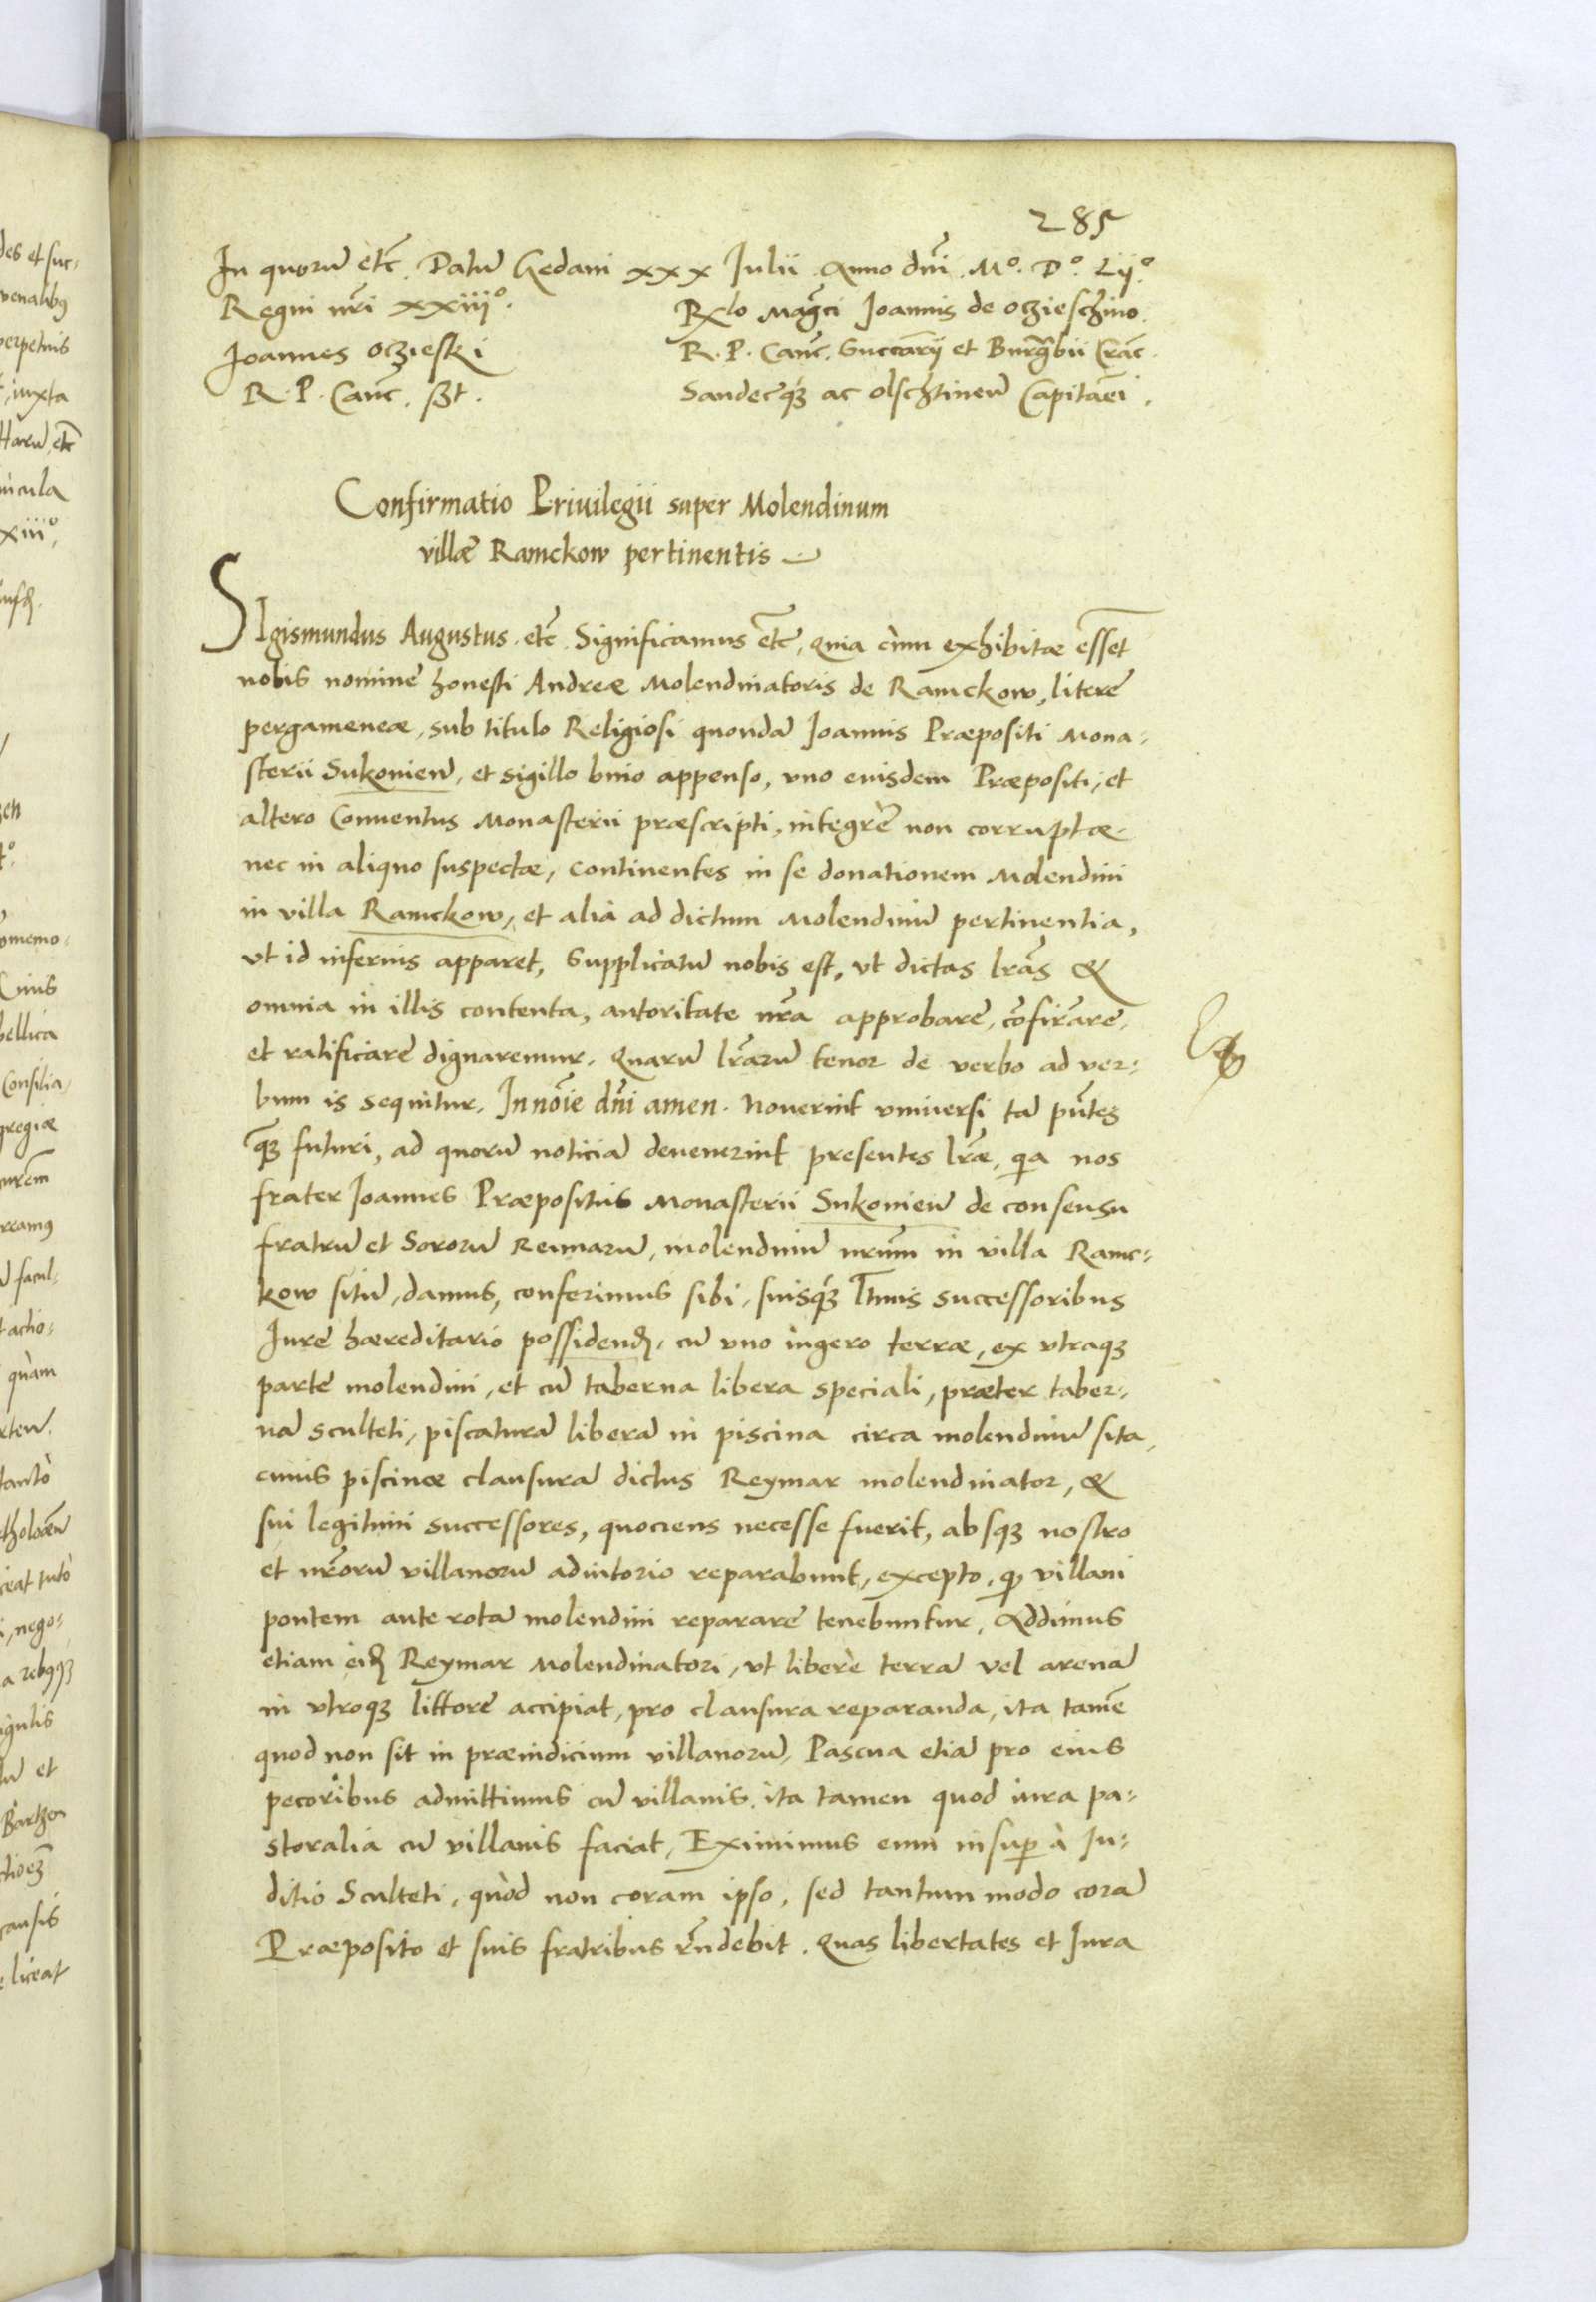 285
In quorū etc̃. Datū Gedani xxx Julii Anno dn̄i M°. D°. Lij°.
Regni nr̄i xxiii°.
Rx̄lo Mag̃ci Joannis de oczieschino.
Joannes oczieski
R. P. Canc̃. Succarij et Burg̃bii Crac̃.
R. P. Canc̃. sz̃t.
Sandecq́ȝ ac olschtineñ Capitãei.
Confirmatio Priuilegii super Molendinum
villæ Ramckow pertinentis
SIgismundus Augustus etc̃. Significamus etc̃, quia cùm exhibitæ esset
nobis nomine honesti Andreæ Molendinatoris de Ramckow, litere
pergameneæ, sub titulo Religiosi quondā Joannis Præpositi Mona-
sterii Sukonieñ, et sigillo bnio appenso, vno euisdem Præpositi, et
altero Conuentus Monasterii præscripti, integrè non corruptæ
nec in aliquo suspectæ, continentes in se donationem Molendini
in villa Ramckow, et alia ad dictum Molendinū pertinentia,
vt id inferius apparet, Supplicatū nobis est, vt dictas lr̃as &
omnia in illis contenta, autoritate nr̃a approbare, cõfirmare,
et ratificare dignaremur. Quarū lr̃arū tenor de verbo ad ver-
bum is sequitur. In nõie dn̄i amen. Nouerint vniuersi tā pñtes
q̃ȝ futuri, ad quorū noticiā deuenerint presentes lr̃æ, qia nos
frater Joannes Præpositus Monasterii Sukonieñ de consensu
fratrū et Sororū Reimarū, molendinū nrūm in villa Ramc-
kow sitū, damus, conferimus sibi, suisq́ȝ ltimis successoribus
Jure hæreditario possidend̃, cū vno iugero terræ, ex vtraqȝ
parte molendini, et cū taberna libera speciali, præter taber-
nā sculteti, piscaturā liberā in piscina circa molendinū sita,
cuius piscinæ clausurā dictus Reymar molendinator, &
sui legitimi successores, quociens necesse fuerit, absqȝ nostro
et nr̃orū villanorū adiutorio reparabunt, excepto, q̃ villani
pontem ante rotā molendini reparare tenebuntur, Addimus
etiam eid̃ Reymar Molendinatori, vt liberè terrā vel arenā
in vtroqȝ littore accipiat, pro clausura reparanda, ita tamẽ
quod non sit in præiudicium villanorū, Pascua etiā pro eius
pecoribus admittimus cū villanis, ita tamen quod iura pa-
storalia cū villanis faciat, Eximimus eum insup̃ à Ju-
ditio Sculteti, quòd non coram ipso, sed tantummodo corā
Præposito et suis fratribus rñdebit. Quas libertates et Jura